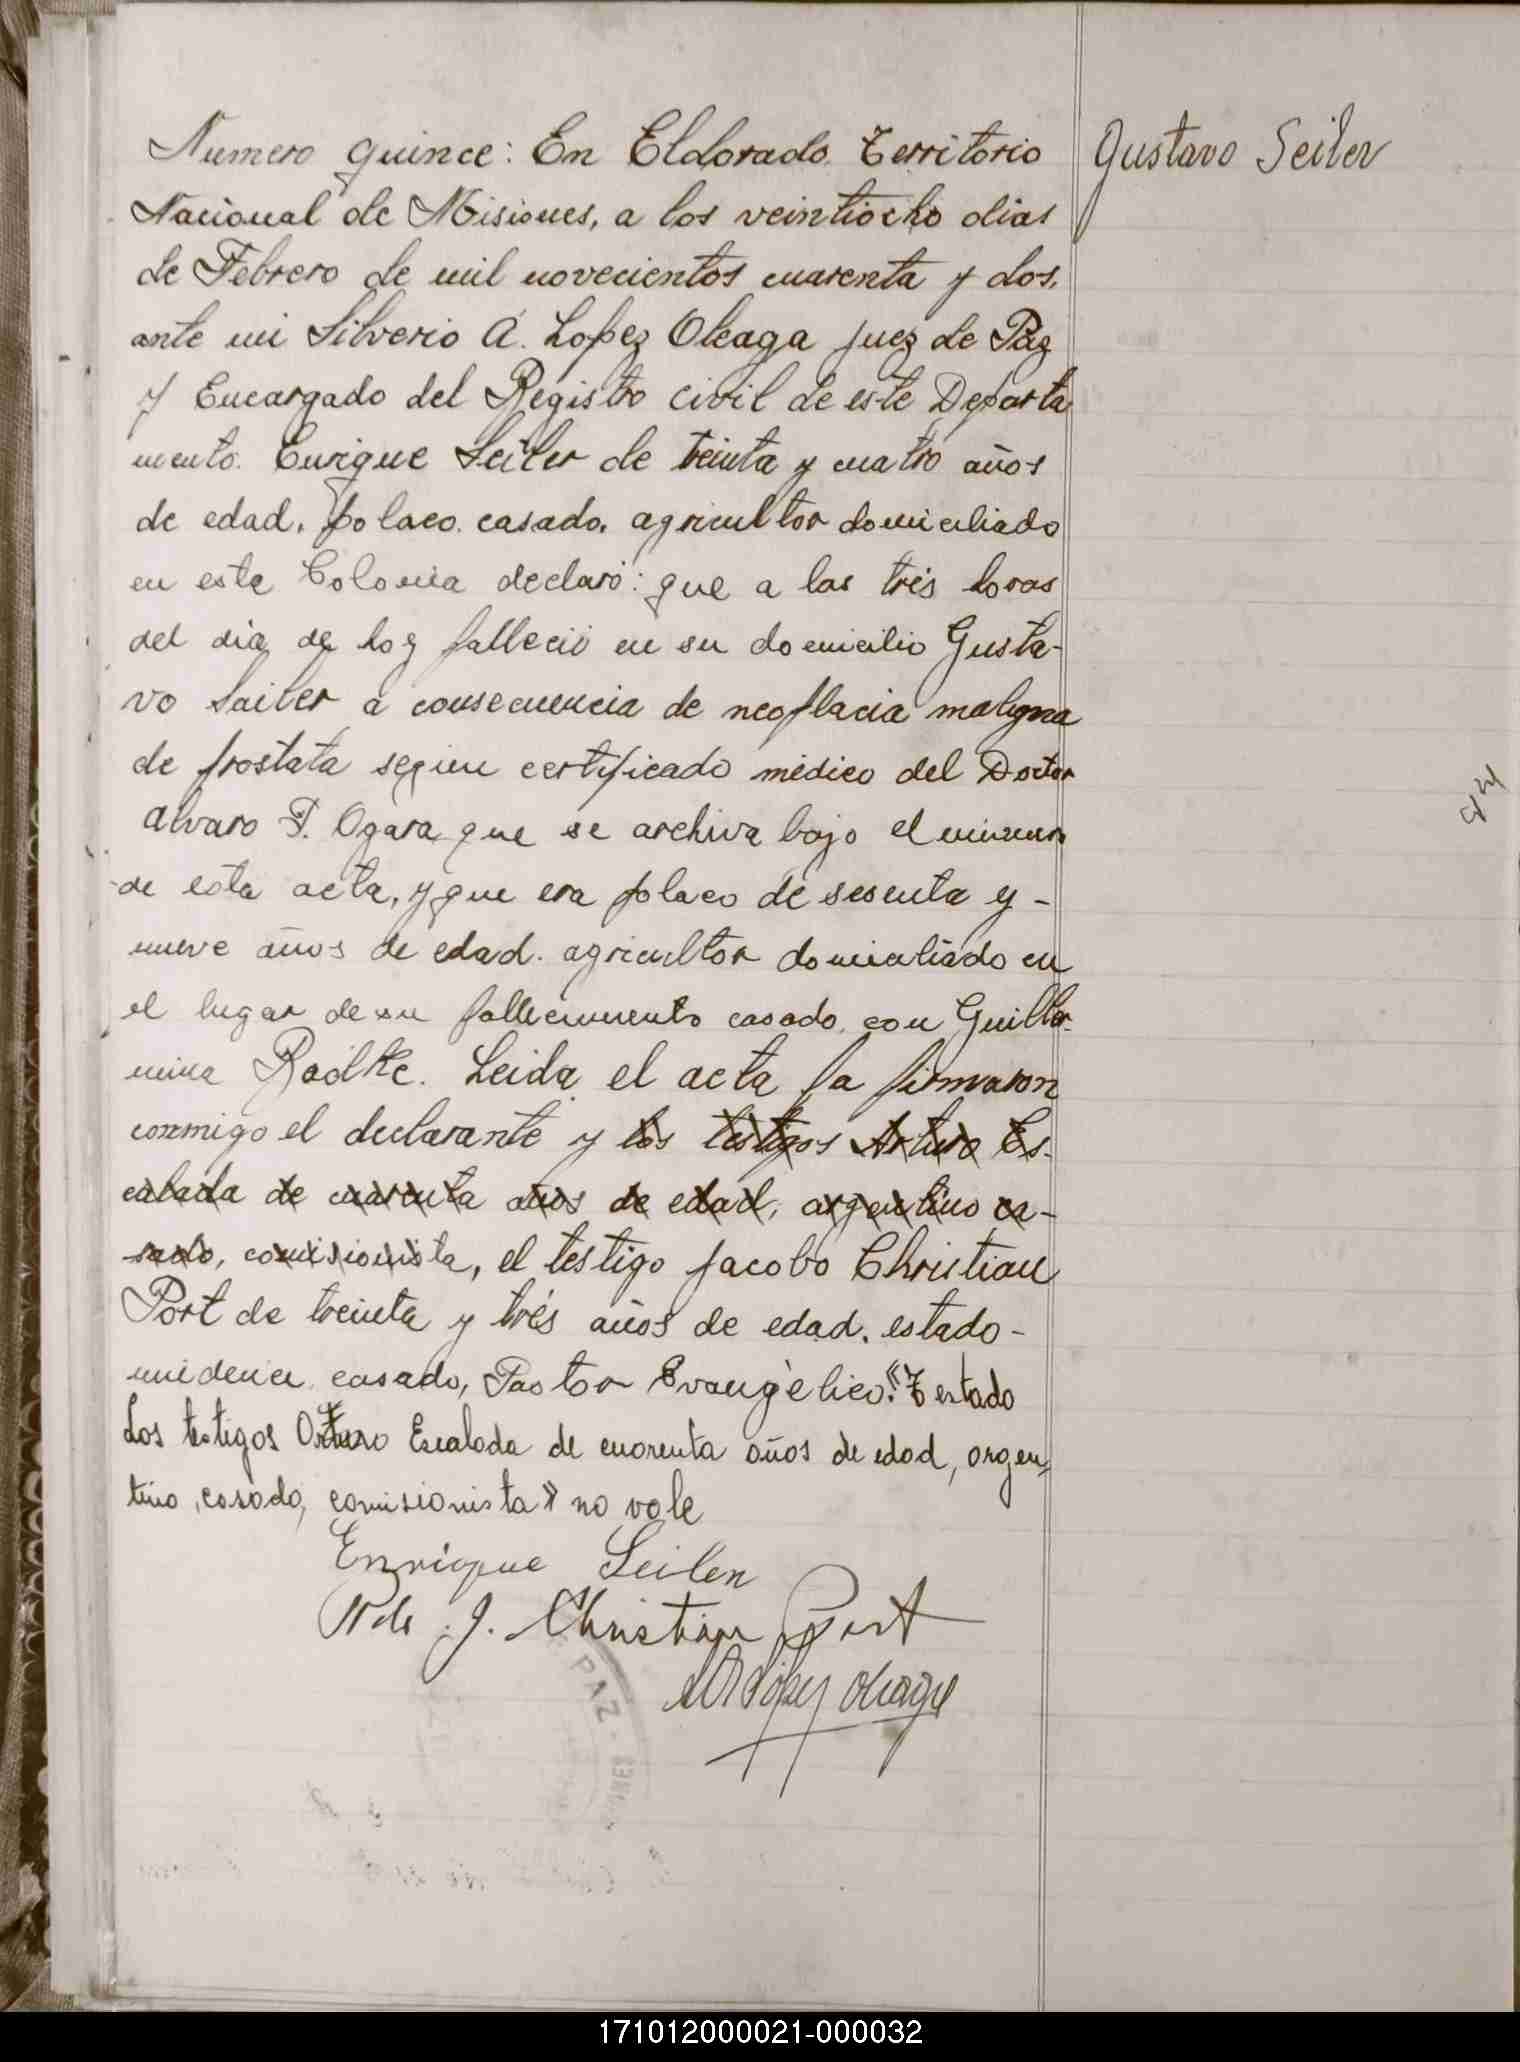 Numero quince: En Eldorado Territorio
Gustavo Seiler
Nacional de Misiones, a los veintiocho dias
de Febrero de mil novecientos cuarenta y dos,
ante mi Silverio A. Lopez Oleaga Juez de Paz
y Encargado del Registro civil de este Departa
mento. Enrique Seiler de treinta y cuatro años
de edad, polaco. casado, agricultor domiciliado
en este Colonia declaró: que a las trés horas
del dia de hoy falleció en su domicilio Gusta-
vo Sailer a consecuencia de neoplacia maligna
de prostata segun certificado médico del Doctor
Alvaro T. Ogara que se archiva bajo el numero
de esta acta, y que era polaco de sesenta y -
nueve años de edad. agricultor domiciliado en
el lugar de su fallecimiento casado con Guiller-
mina Radtke. Leida el acta la firmaron
conmigo el declarante y los testigos Arturo Es-
calada de cuarenta años de edad, argentino ca-
sado, comisionista, el testigo Jacobo Christian
Port de treinta y trés años de edad. estado-
unidence casado, Pastor Evangèlico. "Testado
Los testigos Arturo Escalada de cuarenta años de edad, argen-
tino, casado, comisionista" no vale
Enrique Seiler
J. Christian Port
Lopez Oleaga
PAZ -
171012000021-000032